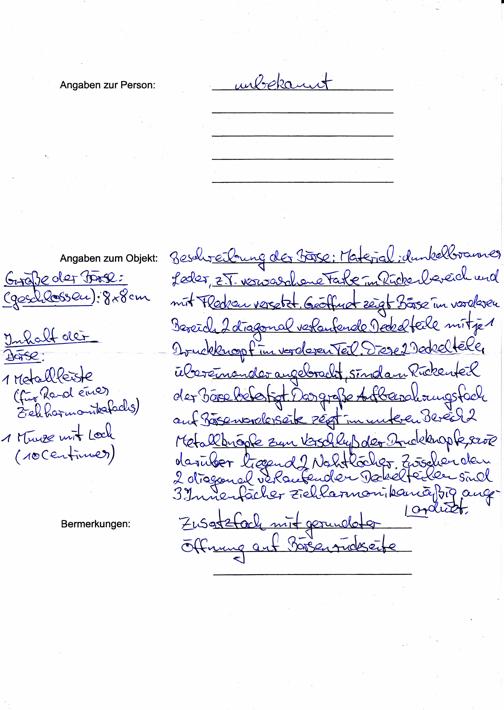 Angaben zur Person: unbekannt
Angaben zum Objekt: Beschreibung der Börse: Material: dunkelbraunes
Leder, z.T. verwaschene Farbe im Rückenbereich und
mit Flecken versetzt. Geöffnet zeigt Börse im vorderen
Bereich 2 diagonal verlaufende Deckelteile mit je 1
Druckknopf im vorderen Teil. Diese 2 Deckelteile,
übereinander angebracht, sind am Rückenteil
der Börse befestigt. Das große Aufbewahrungsfach
auf Börsenvorderseite zeigt im unteren Bereich 2
Metallknöpfe zum Verschluß der Druckknöpfe, sowie
darüber liegend 2 Nahtlöcher. Zwischen den
2 diagonal verlaufenden Deckelteilen sind
3 Innenfächer ziehharmonikamäßig ange-
ordnet.
Größe der Börse:
(geschlossen): 8x8cm
Inhalt der
Börse:
1 Metalleiste
(für Rand eines
Ziehharmonikafachs)
1 Münze mit Loch
(10 Centimes)
Bermerkungen: Zusatzfach mit gerundeter
Öffnung auf Börsenrückseite